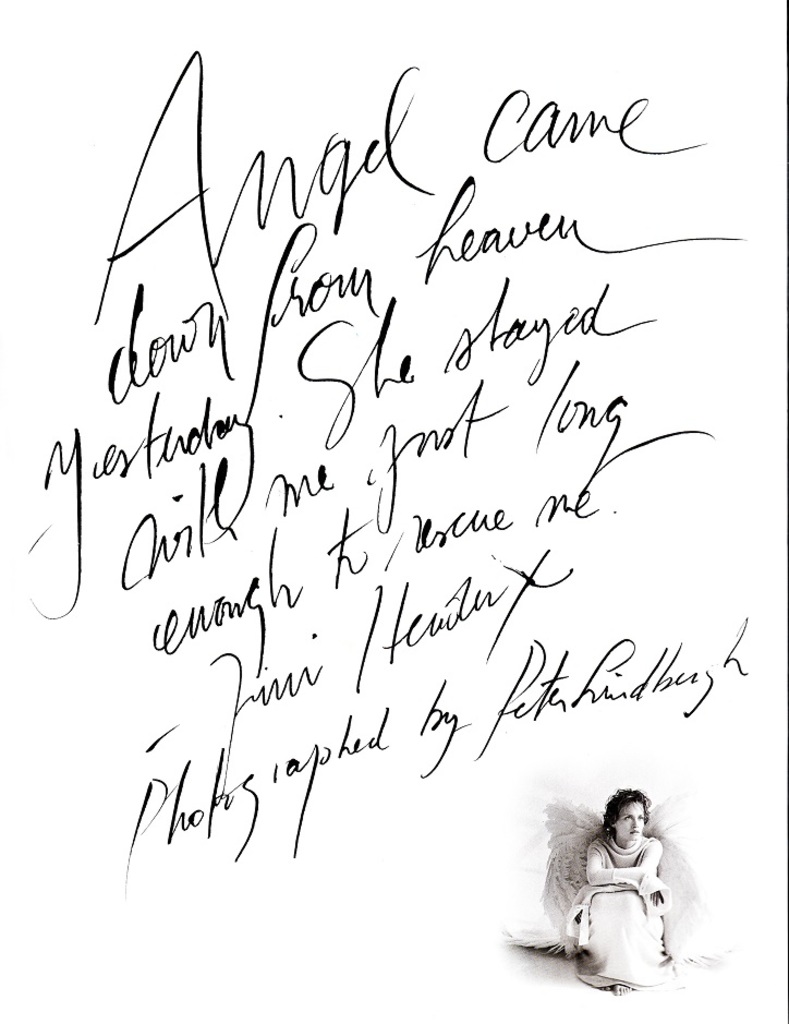 Angel came
down from heaven
yesterday. She stayed
with me just long
enough to rescue me.
– Jimi Hendrix
Photographed by Peter Lindbergh